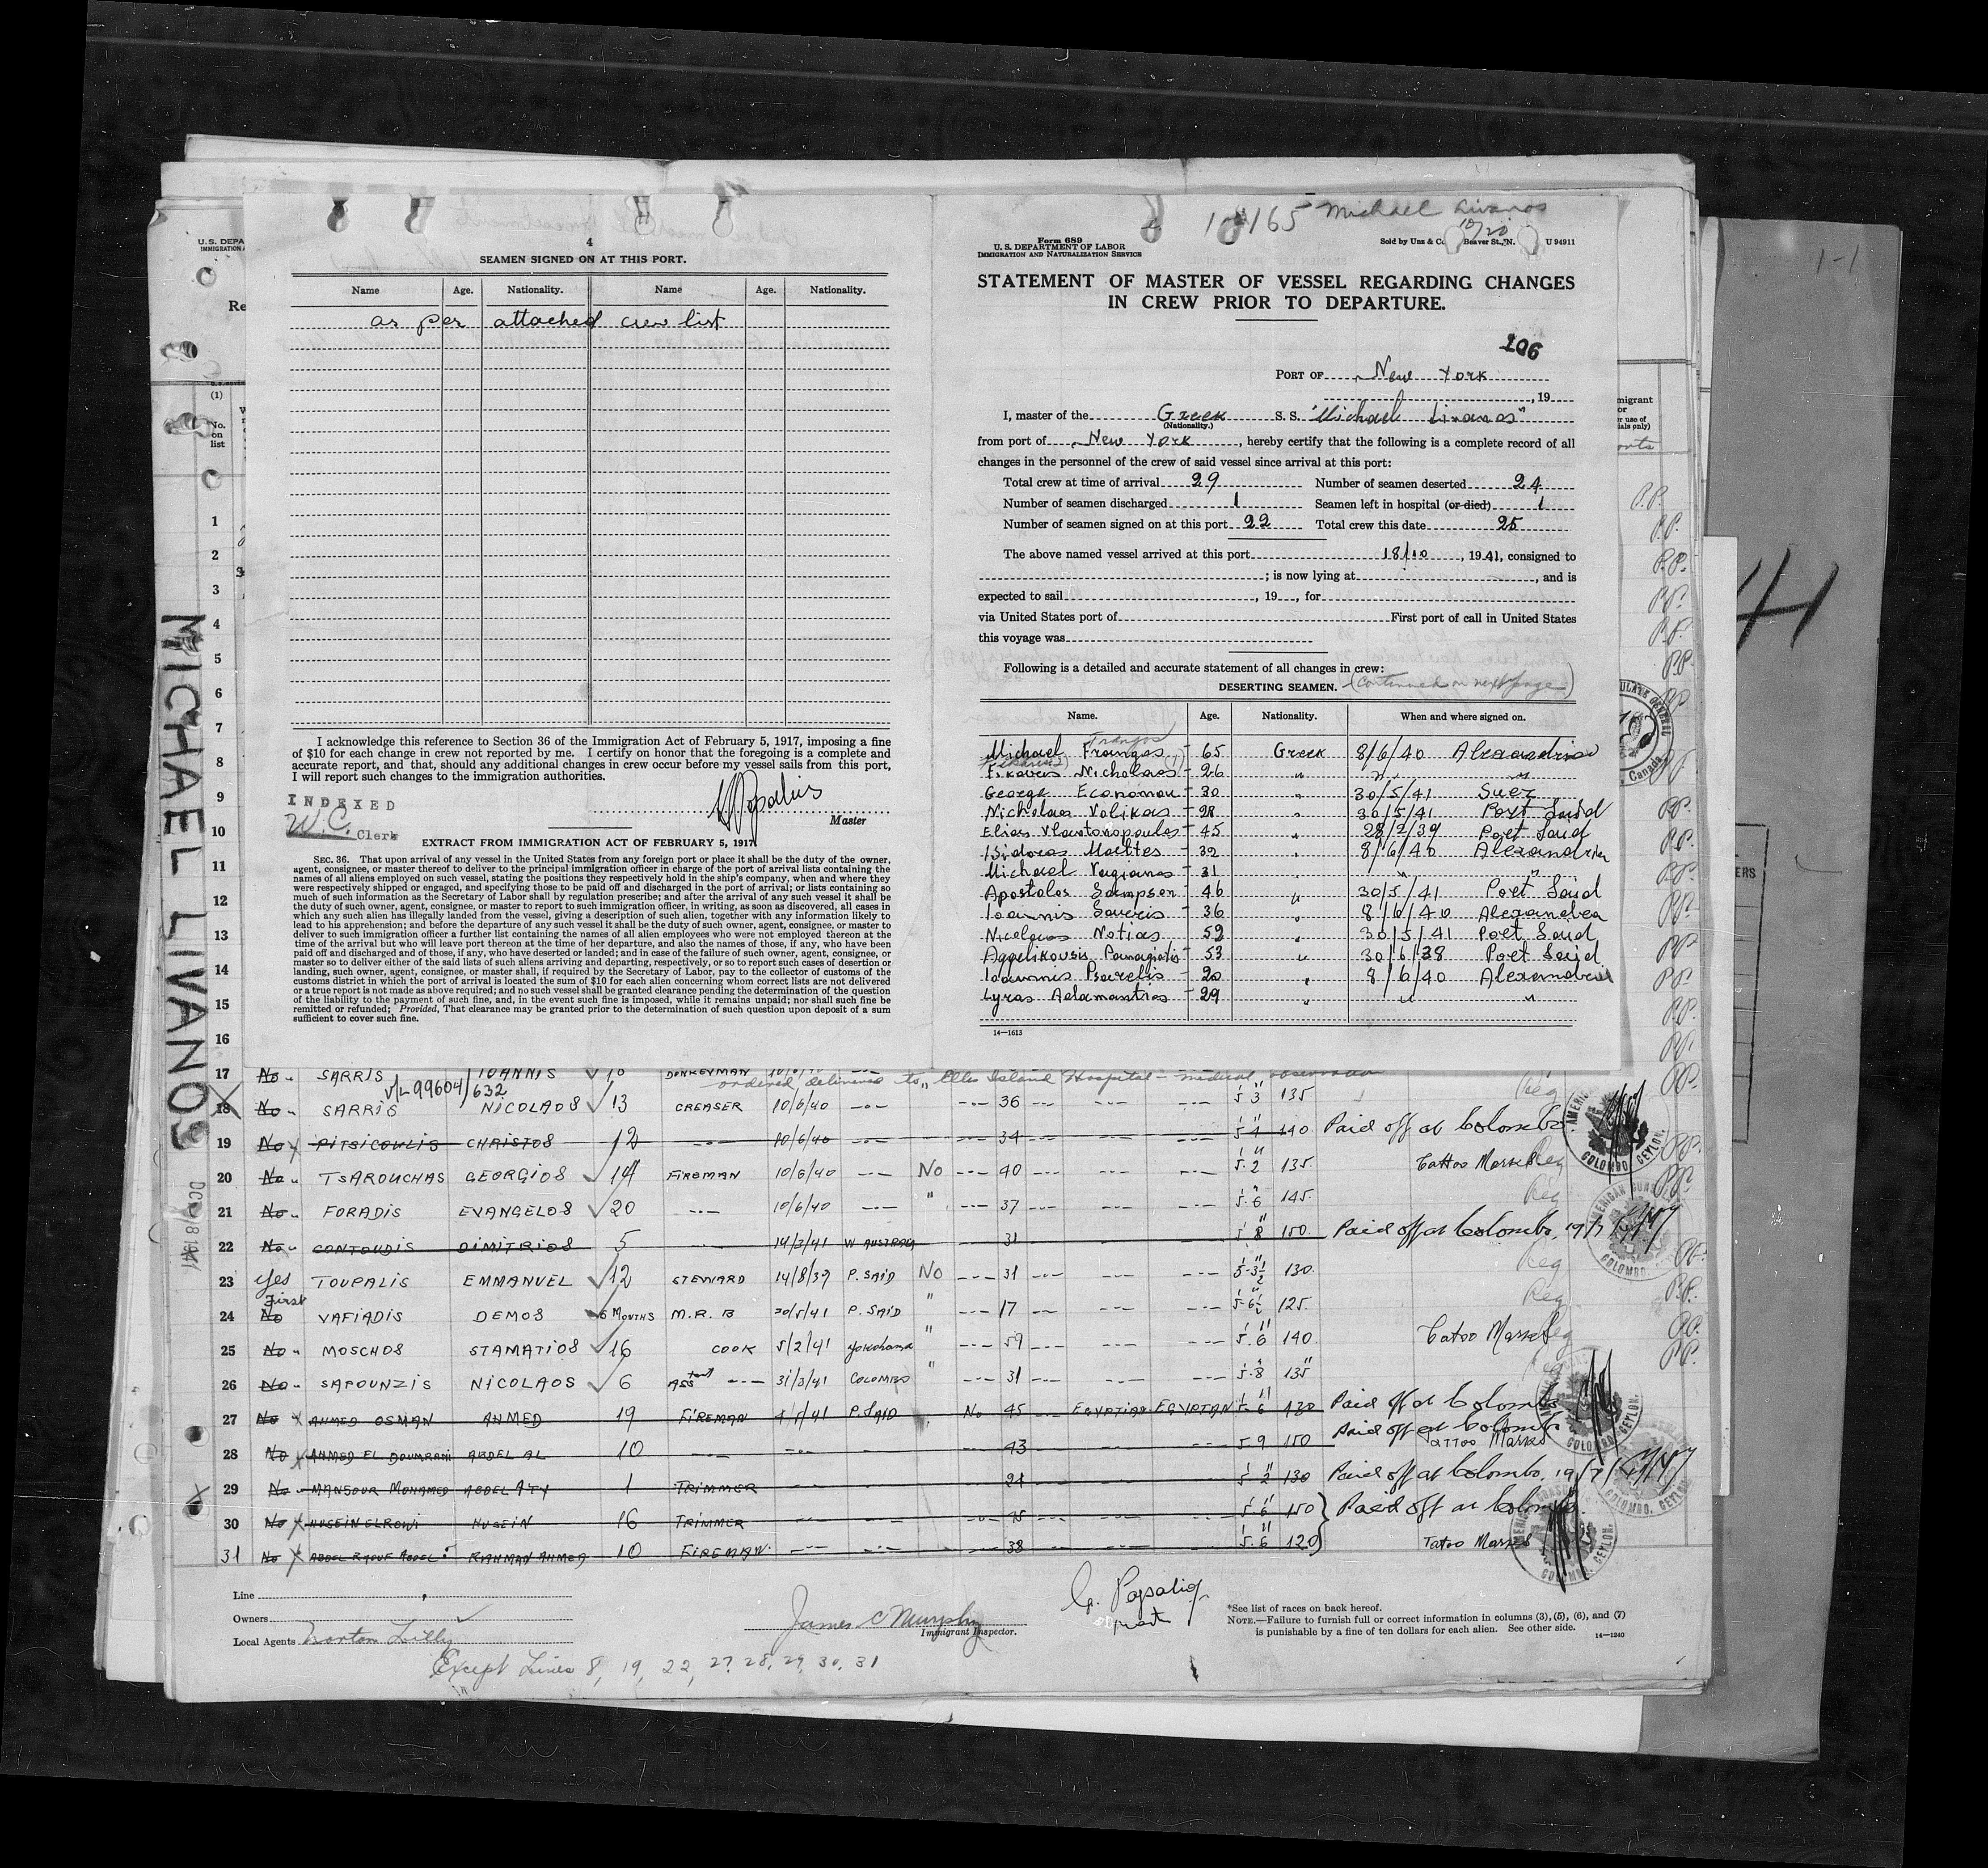 4
SEAMEN SIGNED ON AT THIS PORT.
Name Age. Nationality. Name Age. Nationality.
as per attached crew list
I acknowledge this reference to Section 36 of the Immigration Act of February 5, 1917, imposing a fine
of $10 for each change in crew not reported by me. I certify on honor that the foregoing is a complete and
accurate report, and that, should any additional changes in crew occur before my vessel sails from this port,
I will report such changes to the immigration authorities.
INDEXED
W.C. Clerk
Master
EXTRACT FROM IMMIGRATION ACT OF FEBRUARY 5, 1917.
SEC. 36. That upon arrival of any vessel in the United States from any foreign port or place it shall be the duty of the owner,
agent, consignee, or master thereof to deliver to the principal immigration officer in charge of the port of arrival lists containing the
names of all aliens employed on such vessel, stating the positions they respectively hold in the ship's company, when and where they
were respectively shipped or engaged, and specifying those to be paid off and discharged in the port of arrival; or lists containing so
much of such information as the Secretary of Labor shall by regulation prescribe; and after the arrival of any such vessel it shall be
the duty of such owner, agent, consignee, or master to report to such immigration officer, in writing, as soon as discovered, all cases in
which any such alien has illegally landed from the vessel, giving a description of such alien, together with any information likely to
lead to his apprehension; and before the departure of any such vessel it shall be the duty of such owner, agent, consignee, or master to
deliver to such immigration officer a further list containing the names of all alien employees who were not employed thereon at the
time of the arrival but who will leave port thereon at the time of her departure, and also the names of those, if any, who have been
paid off and discharged and of those, if any, who have deserted or landed; and in case of the failure of such owner, agent, consignee, or
master so to deliver either of the said lists of such aliens arriving and departing, respectively, or so to report such cases of desertion or
landing, such owner, agent, consignee, or master shall, if required by the Secretary of Labor, pay to the collector of customs of the
customs district in which the port of arrival is located the sum of $10 for each alien concerning whom correct lists are not delivered
or a true report is not made as above required; and no such vessel shall be granted clearance pending the determination of the question
of the liability to the payment of such fine, and, in the event such fine is imposed, while it remains unpaid; nor shall such fine be
remitted or refunded; Provided, That clearance may be granted prior to the determination of such question upon deposit of a sum
sufficient to cover such fine.
Michael Livanos
10/20
Form 689
U.S. DEPARTMENT OF LABOR
IMMIGRATION AND NATURALIZATION SERVICE
Sold by Unz & Co Beaver St., N. U 94911
STATEMENT OF MASTER OF VESSEL REGARDING CHANGES
IN CREW PRIOR TO DEPARTURE.
106
PORT OF New York
, 19
I, master of the Greek S. S. "Michael Livanos"
(Nationality.)
from port of New York, hereby certify that the following is a complete record of all
changes in the personnel of the crew of said vessel since arrival at this port:
Total crew at time of arrival 29 Number of seamen deserted 24
Number of seamen discharged 1 Seamen left in hospital (or died) 1
Number of seamen signed on at this port 22 Total crew this date 25
The above named vessel arrived at this port 18/10, 1941, consigned to
; is now lying at , and is
expected to sail , 19 , for
via United States port of First port of call in United States
this voyage was
Following is a detailed and accurate statement of all changes in crew:
DESERTING SEAMEN. (Continued on next page)
Name. Age. Nationality. When and where signed on.
Michael Frangos 65 Greek 8/6/40 Alexandria
Nicholaos 26 " " "
George Economou 30 " 30/5/41 Suez
Nicholaos Volikas 28 " 30/5/41 Port Said
Elias Vlantonopoulos 45 " 28/2/39 Port Said
Isidoros Maltes 32 " 8/6/40 Alexandria
Michael Vagianos 31 " "
Apostolos Sampson 46 " 30/5/41 Port Said
Ioannis Saveris 36 " 8/6/40 Alexandria
Nicolaos Notias 52 " 30/5/41 Port Said
Aggelikousis Panagiotis 53 " 30/6/38 Port Said
Ioannis Psarelis 20 " 8/6/40 Alexandria
Lyras Adamantios 29 " " "
14—1613
MICHAEL LIVANOS
U.S. DEPA
(1)
No. on list
1
2
3
4
5
6
7
8
9
10
11
12
13
14
15
16
17 No SARRIS IOANNIS DONKEYMAN
ordered delivered to Ellis Island Hospital - medical observation
99604/632
18 No SARRIS NICOLAOS 13 GREASER 10/6/40 36 5 3 135
19 No PITSICOULIS CHRISTOS 12 10/6/40 34 5 4 140 Paid off at Colombo
20 No TSAROUCHAS GEORGIOS 14 FIREMAN 10/6/40 No 40 5.2 135 Tattoo Marks Reg
21 No FORADIS EVANGELOS 20 10/6/40 " 37 5.6 145 Reg
22 No CONTOUDIS DIMITRIOS 5 14/3/41 W AUSTRALIA 31 5 8 150 Paid off at Colombo, 19/7/
23 Yes TOUPALIS EMMANUEL 12 STEWARD 14/8/39 P. SAID No 31 5-3½ 130 Reg
First
24 No VAFIADIS DEMOS 6 MONTHS M.R.B 30/5/41 P. SAID " 17 5-6½ 125 Reg
25 No MOSCHOS STAMATIOS 16 COOK 5/2/41 Yokohama " 59 5.6 140 Tatoo Marks Reg
26 No SAPOUNZIS NICOLAOS 6 ASStant 31/3/41 COLOMBO " 31 5.8 135
27 No AHMED OSMAN AHMED 19 FIREMAN 4/1/41 P. SAID No 45 EGYPTIAN EGYPTIAN 5 6 130 Paid off at Colombo
28 No AHMED EL DOUMRANI ABDEL AL 10 43 5 9 150 Paid off at Colombo Tattoo Marks
29 No MANSOUR MOHAMED ABDEL ATY 1 TRIMMER 24 5 2 130 Paid off at Colombo, 19/7/
30 No HUSEIN HUSEIN 16 TRIMMER 5.6 150 Paid off at Colombo
31 No ABDEL RAOUF ABDEL RAHMAN AHMED 10 FIREMAN 38 5.6 120 Tatoo Marks
AMERICAN CONSULATE
COLOMBO, CEYLON.
Line
Owners
Local Agents Norton Lilly
James C Murphy
Immigrant Inspector.
*See list of races on back hereof.
NOTE.—Failure to furnish full or correct information in columns (3), (5), (6), and (7)
is punishable by a fine of ten dollars for each alien. See other side.
14—1240
Except Lines 8, 19, 22, 27, 28, 29, 30, 31